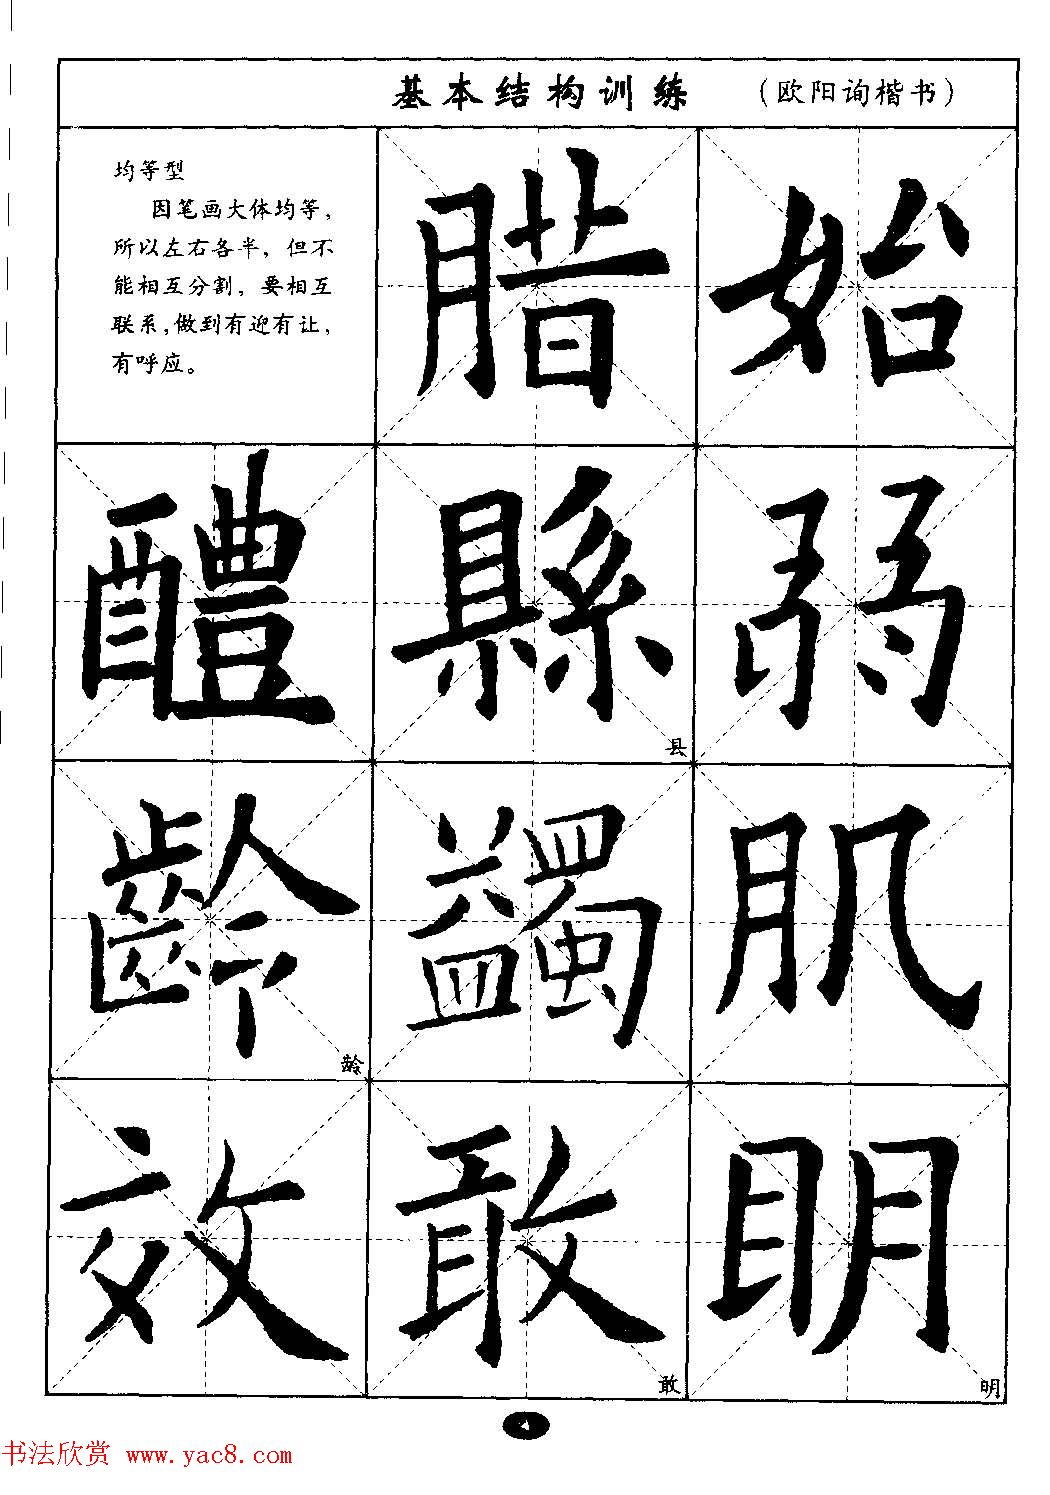 基本结构训练 （欧阳询楷书）
均等型
因笔画大体均等，
所以左右各半，但不
能相互分割，要相互
联系，做到有迎有让，
有呼应。
腊 始
醴 縣 弱
县
齡 蠲 肌
龄
效 敢 明
敢 明
4
书法欣赏 www.yac8.com